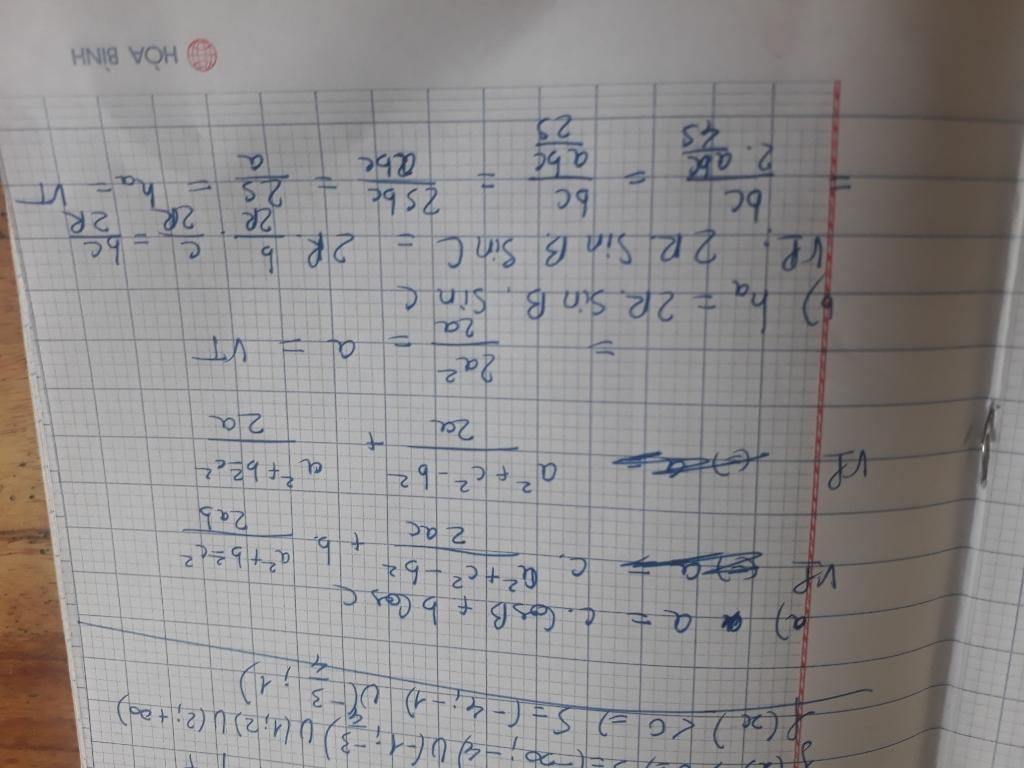 f(x) < 0 => S = (-4; -1) ∪ (-3/4; 1)
a) a = c. cosB + b cos C
VP = c. (a² + c² - b²)/(2ac) + b. (a² + b² - c²)/(2ab)
VP (a² + c² - b²)/(2a) + (a² + b² - c²)/(2a)
= 2a²/2a = a = VT
b) ha = 2R. Sin B. Sin C
VP: 2R. Sin B. Sin C = 2R. b/2R. c/2R = bc/2R
= bc/(2. abc/4S) = bc/(abc/2S) = 2Sbc/abc = 2S/a = ha = VT
HÒA BÌNH